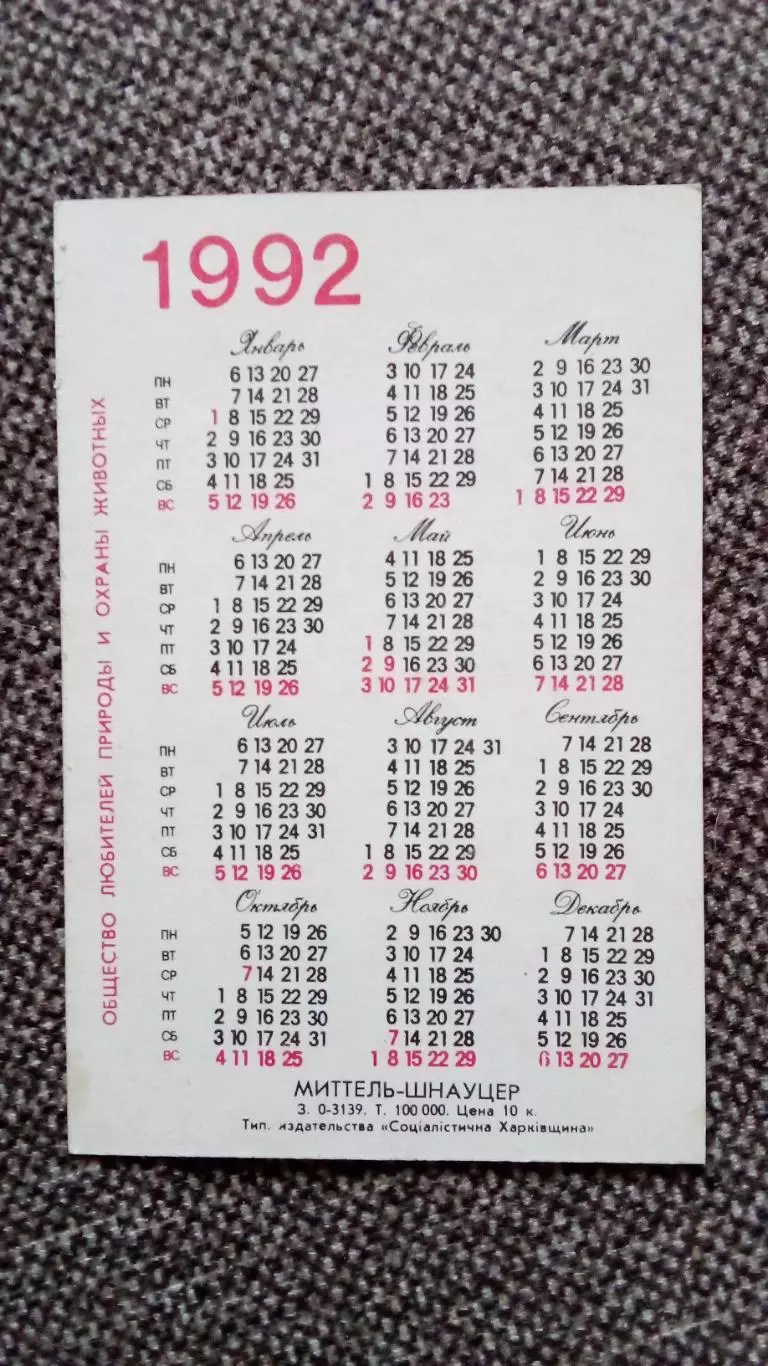 1992
ОБЩЕСТВО ЛЮБИТЕЛЕЙ ПРИРОДЫ И ОХРАНЫ ЖИВОТНЫХ
Январь Февраль Март
ПН 6 13 20 27 3 10 17 24 2 9 16 23 30
ВТ 7 14 21 28 4 11 18 25 3 10 17 24 31
СР 1 8 15 22 29 5 12 19 26 4 11 18 25
ЧТ 2 9 16 23 30 6 13 20 27 5 12 19 26
ПТ 3 10 17 24 31 7 14 21 28 6 13 20 27
СБ 4 11 18 25 1 8 15 22 29 7 14 21 28
ВС 5 12 19 26 2 9 16 23 1 8 15 22 29
Апрель Май Июнь
ПН 6 13 20 27 4 11 18 25 1 8 15 22 29
ВТ 7 14 21 28 5 12 19 26 2 9 16 23 30
СР 1 8 15 22 29 6 13 20 27 3 10 17 24
ЧТ 2 9 16 23 30 7 14 21 28 4 11 18 25
ПТ 3 10 17 24 1 8 15 22 29 5 12 19 26
СБ 4 11 18 25 2 9 16 23 30 6 13 20 27
ВС 5 12 19 26 3 10 17 24 31 7 14 21 28
Июль Август Сентябрь
ПН 6 13 20 27 3 10 17 24 31 7 14 21 28
ВТ 7 14 21 28 4 11 18 25 1 8 15 22 29
СР 1 8 15 22 29 5 12 19 26 2 9 16 23 30
ЧТ 2 9 16 23 30 6 13 20 27 3 10 17 24
ПТ 3 10 17 24 31 7 14 21 28 4 11 18 25
СБ 4 11 18 25 1 8 15 22 29 5 12 19 26
ВС 5 12 19 26 2 9 16 23 30 6 13 20 27
Октябрь Ноябрь Декабрь
ПН 5 12 19 26 2 9 16 23 30 7 14 21 28
ВТ 6 13 20 27 3 10 17 24 1 8 15 22 29
СР 7 14 21 28 4 11 18 25 2 9 16 23 30
ЧТ 1 8 15 22 29 5 12 19 26 3 10 17 24 31
ПТ 2 9 16 23 30 6 13 20 27 4 11 18 25
СБ 3 10 17 24 31 7 14 21 28 5 12 19 26
ВС 4 11 18 25 1 8 15 22 29 6 13 20 27
МИТТЕЛЬ-ШНАУЦЕР
З. 0-3139. Т. 100 000. Цена 10 к.
Тип. издательства «Соціалістична Харківщина»